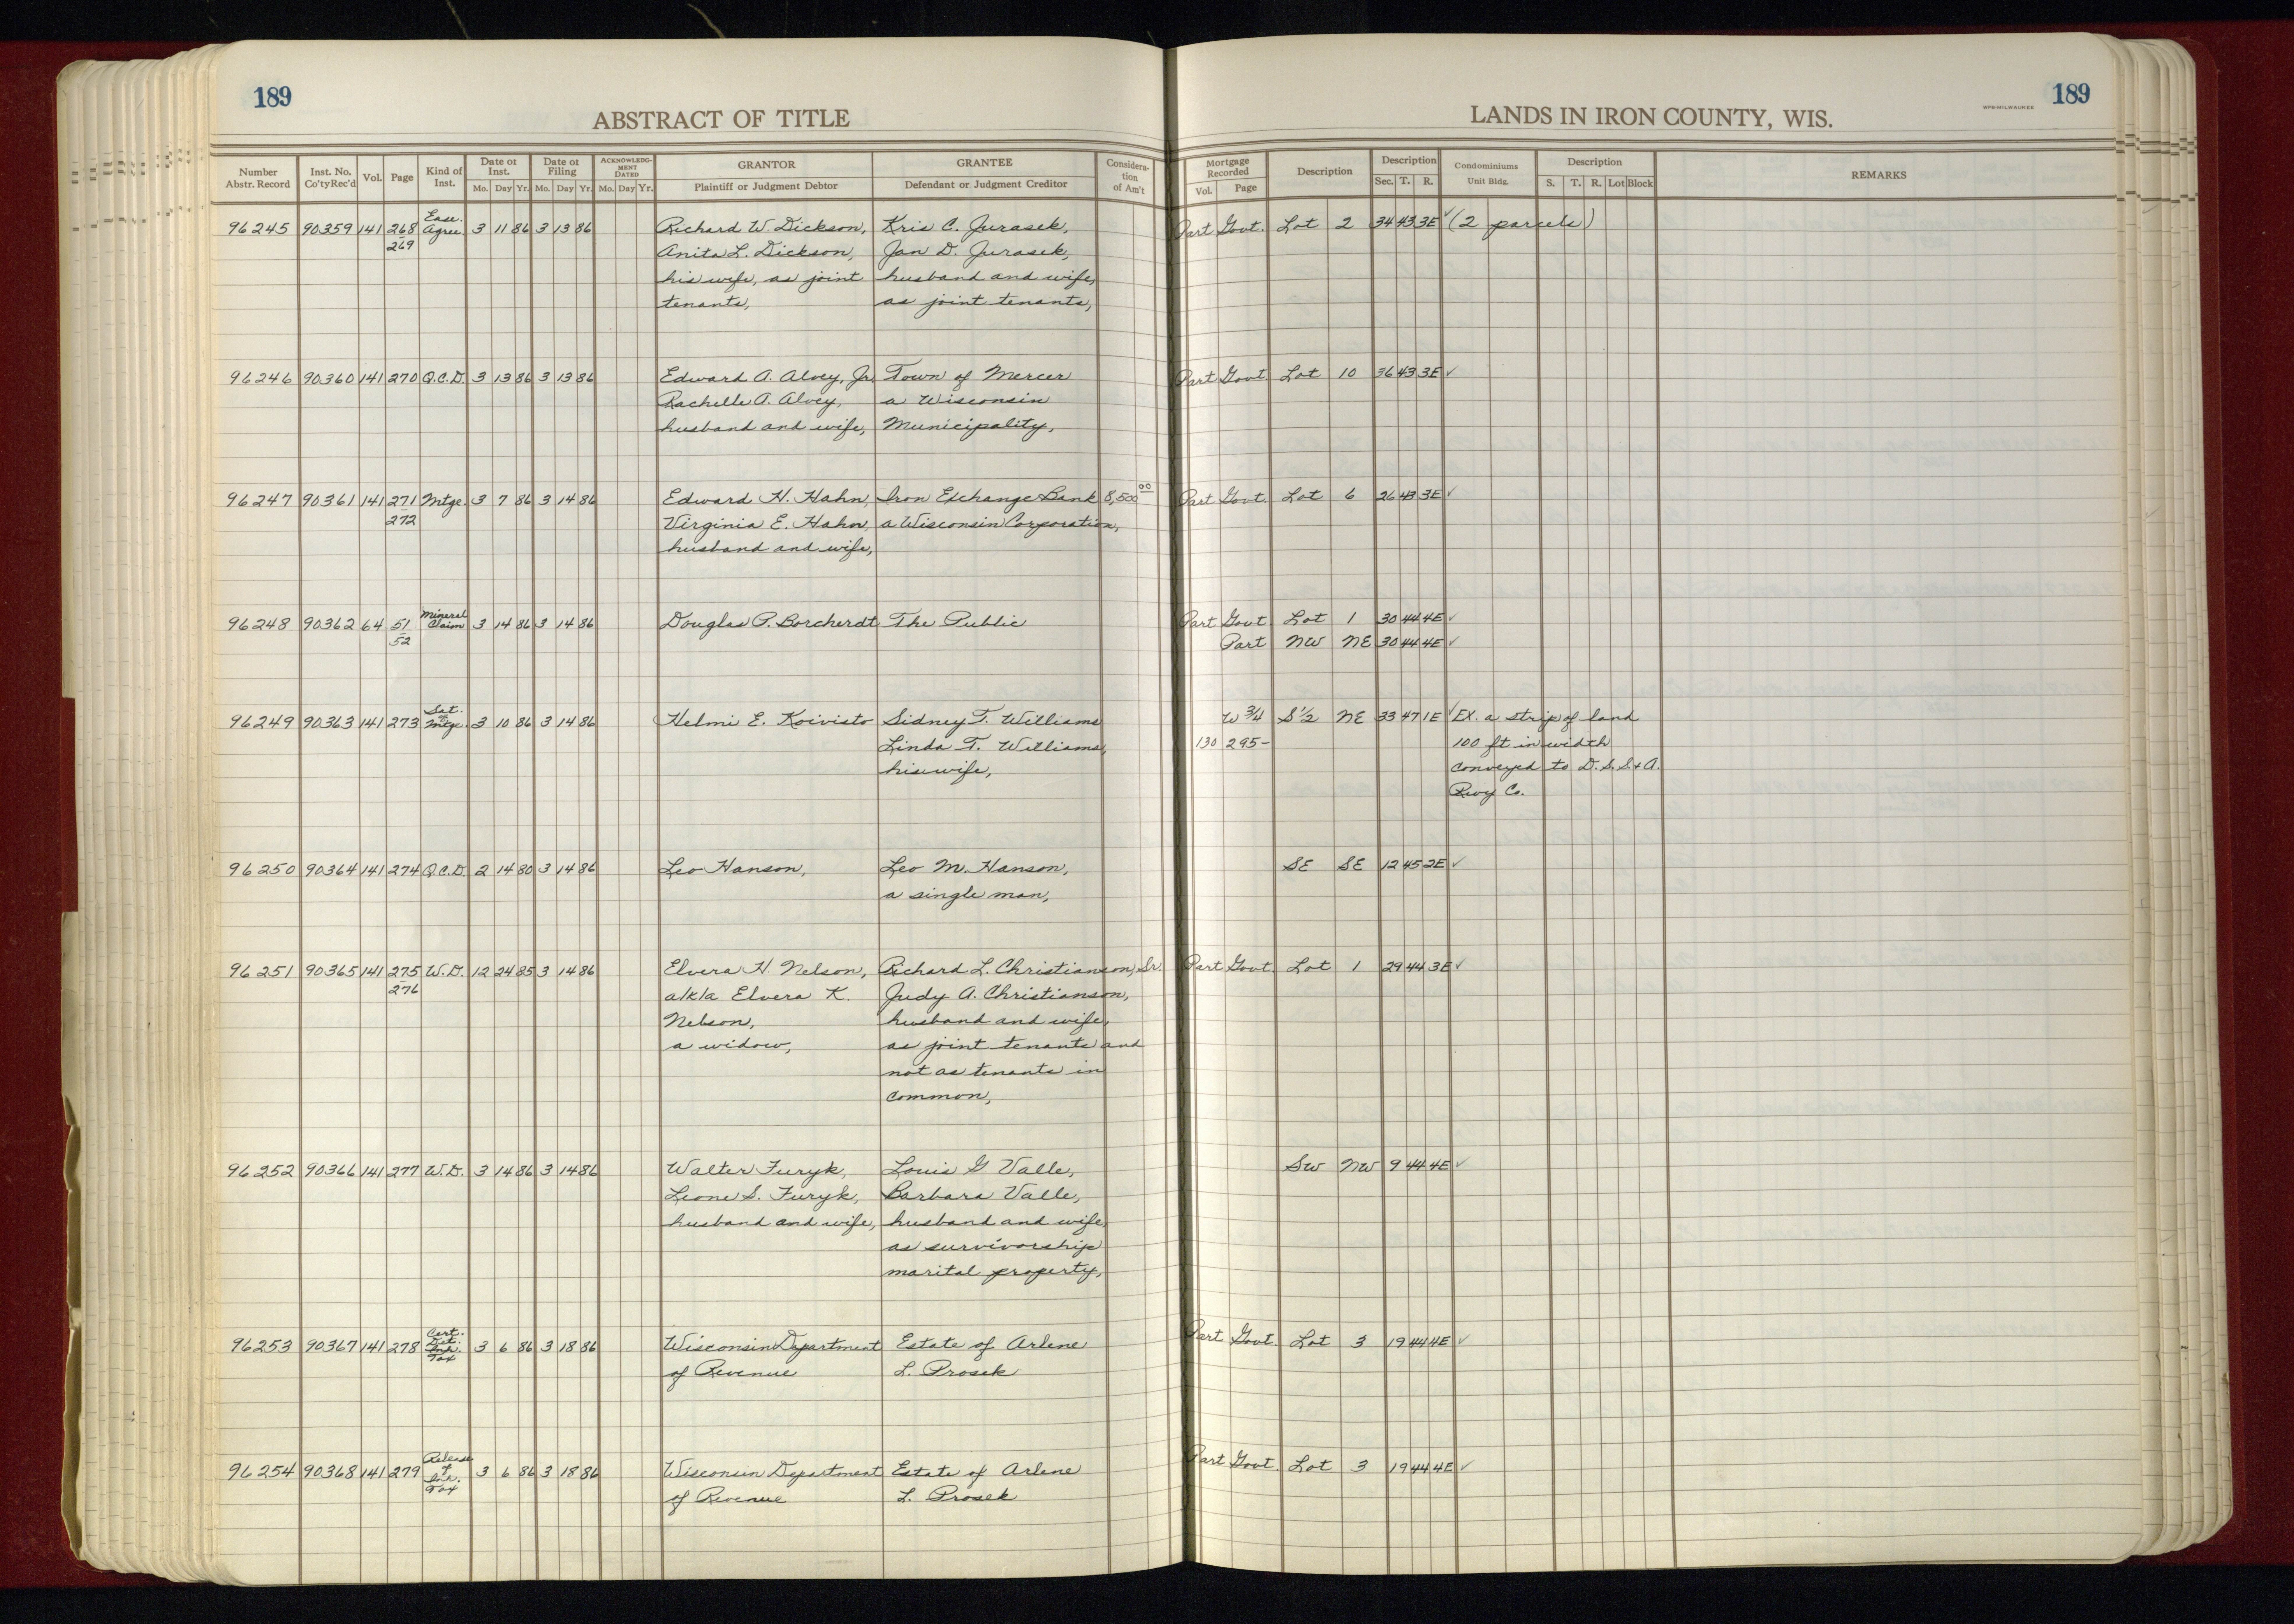 189
ABSTRACT OF TITLE
LANDS IN IRON COUNTY, WIS.
WPB-MILWAUKEE
189
Number Abstr. Record | Inst. No. Co'ty Rec'd | Vol. | Page | Kind of Inst. | Date of Inst. Mo. Day Yr. | Date of Filing Mo. Day Yr. | ACKNOWLEDGMENT DATED Mo. Day Yr. | GRANTOR Plaintiff or Judgment Debtor | GRANTEE Defendant or Judgment Creditor | Consideration of Am't | Mortgage Recorded Vol. Page | Description | Description Sec. T. R. | Condominiums Unit Bldg. | Description S. T. R. Lot Block | REMARKS
96245 90359 141 268 Ease. Agree. 3 11 86 3 13 86 Richard W. Dickson, Kris C. Jurasek, Part Govt. Lot 2 34 43 3E ✓ (2 parcels)
269 Anita L. Dickson, Jan D. Jurasek,
his wife, as joint husband and wife,
tenants, as joint tenants,
96246 90360 141 270 Q.C.D. 3 13 86 3 13 86 Edward A. Alvey, Jr. Town of Mercer Part Govt. Lot 10 36 43 3E ✓
Rachelle A. Alvey, a Wisconsin
husband and wife, Municipality,
96247 90361 141 271 Mtge. 3 7 86 3 14 86 Edward H. Hahn, Iron Exchange Bank 8,500 00 Part Govt. Lot 6 26 43 3E ✓
272 Virginia E. Hahn, a Wisconsin Corporation,
husband and wife,
96248 90362 64 51 Mineral Claim 3 14 86 3 14 86 Douglas P. Borcherdt The Public Part Govt Lot 1 30 44 4E ✓
52 Part NW NE 30 44 4E ✓
96249 90363 141 273 Sat. of Mtge. 3 10 86 3 14 86 Helmi E. Koivisto Sidney T. Williams W 3/4 S 1/2 NE 33 47 1E ✓ Ex. a strip of land
Linda T. Williams, 130 295- 100 ft in width
his wife, conveyed to D.S.S.+A.
Rwy Co.
96250 90364 141 274 Q.C.D. 2 14 80 3 14 86 Leo Hanson, Leo M. Hanson, SE SE 12 45 2E ✓
a single man,
96251 90365 141 275 W.D. 12 24 85 3 14 86 Elvera H. Nelson, Richard L. Christianson, Sr. Part Govt. Lot 1 29 44 3E ✓
276 a/k/a Elvera K. Judy A. Christianson,
Nelson, husband and wife,
a widow, as joint tenants and
not as tenants in
common,
96252 90366 141 277 W.D. 3 14 86 3 14 86 Walter Furyk, Louis G Valle, SW NW 9 44 4E ✓
Leone S. Furyk, Barbara Valle,
husband and wife, husband and wife,
as survivorship
marital property,
96253 90367 141 278 Cert. Det. Inh. Tax 3 6 86 3 18 86 Wisconsin Department Estate of Arlene Part Govt. Lot 3 19 44 4E ✓
of Revenue L. Prosek
96254 90368 141 279 Release of Inh. Tax 3 6 86 3 18 86 Wisconsin Department Estate of Arlene Part Govt. Lot 3 19 44 4E ✓
of Revenue L. Prosek